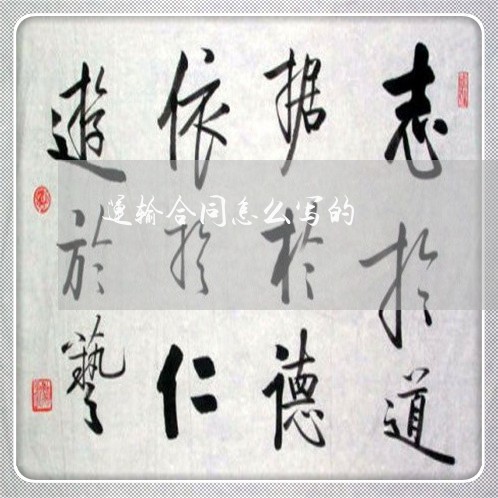 志於道
据於德
依於仁
遊於藝
运输合同怎么写的